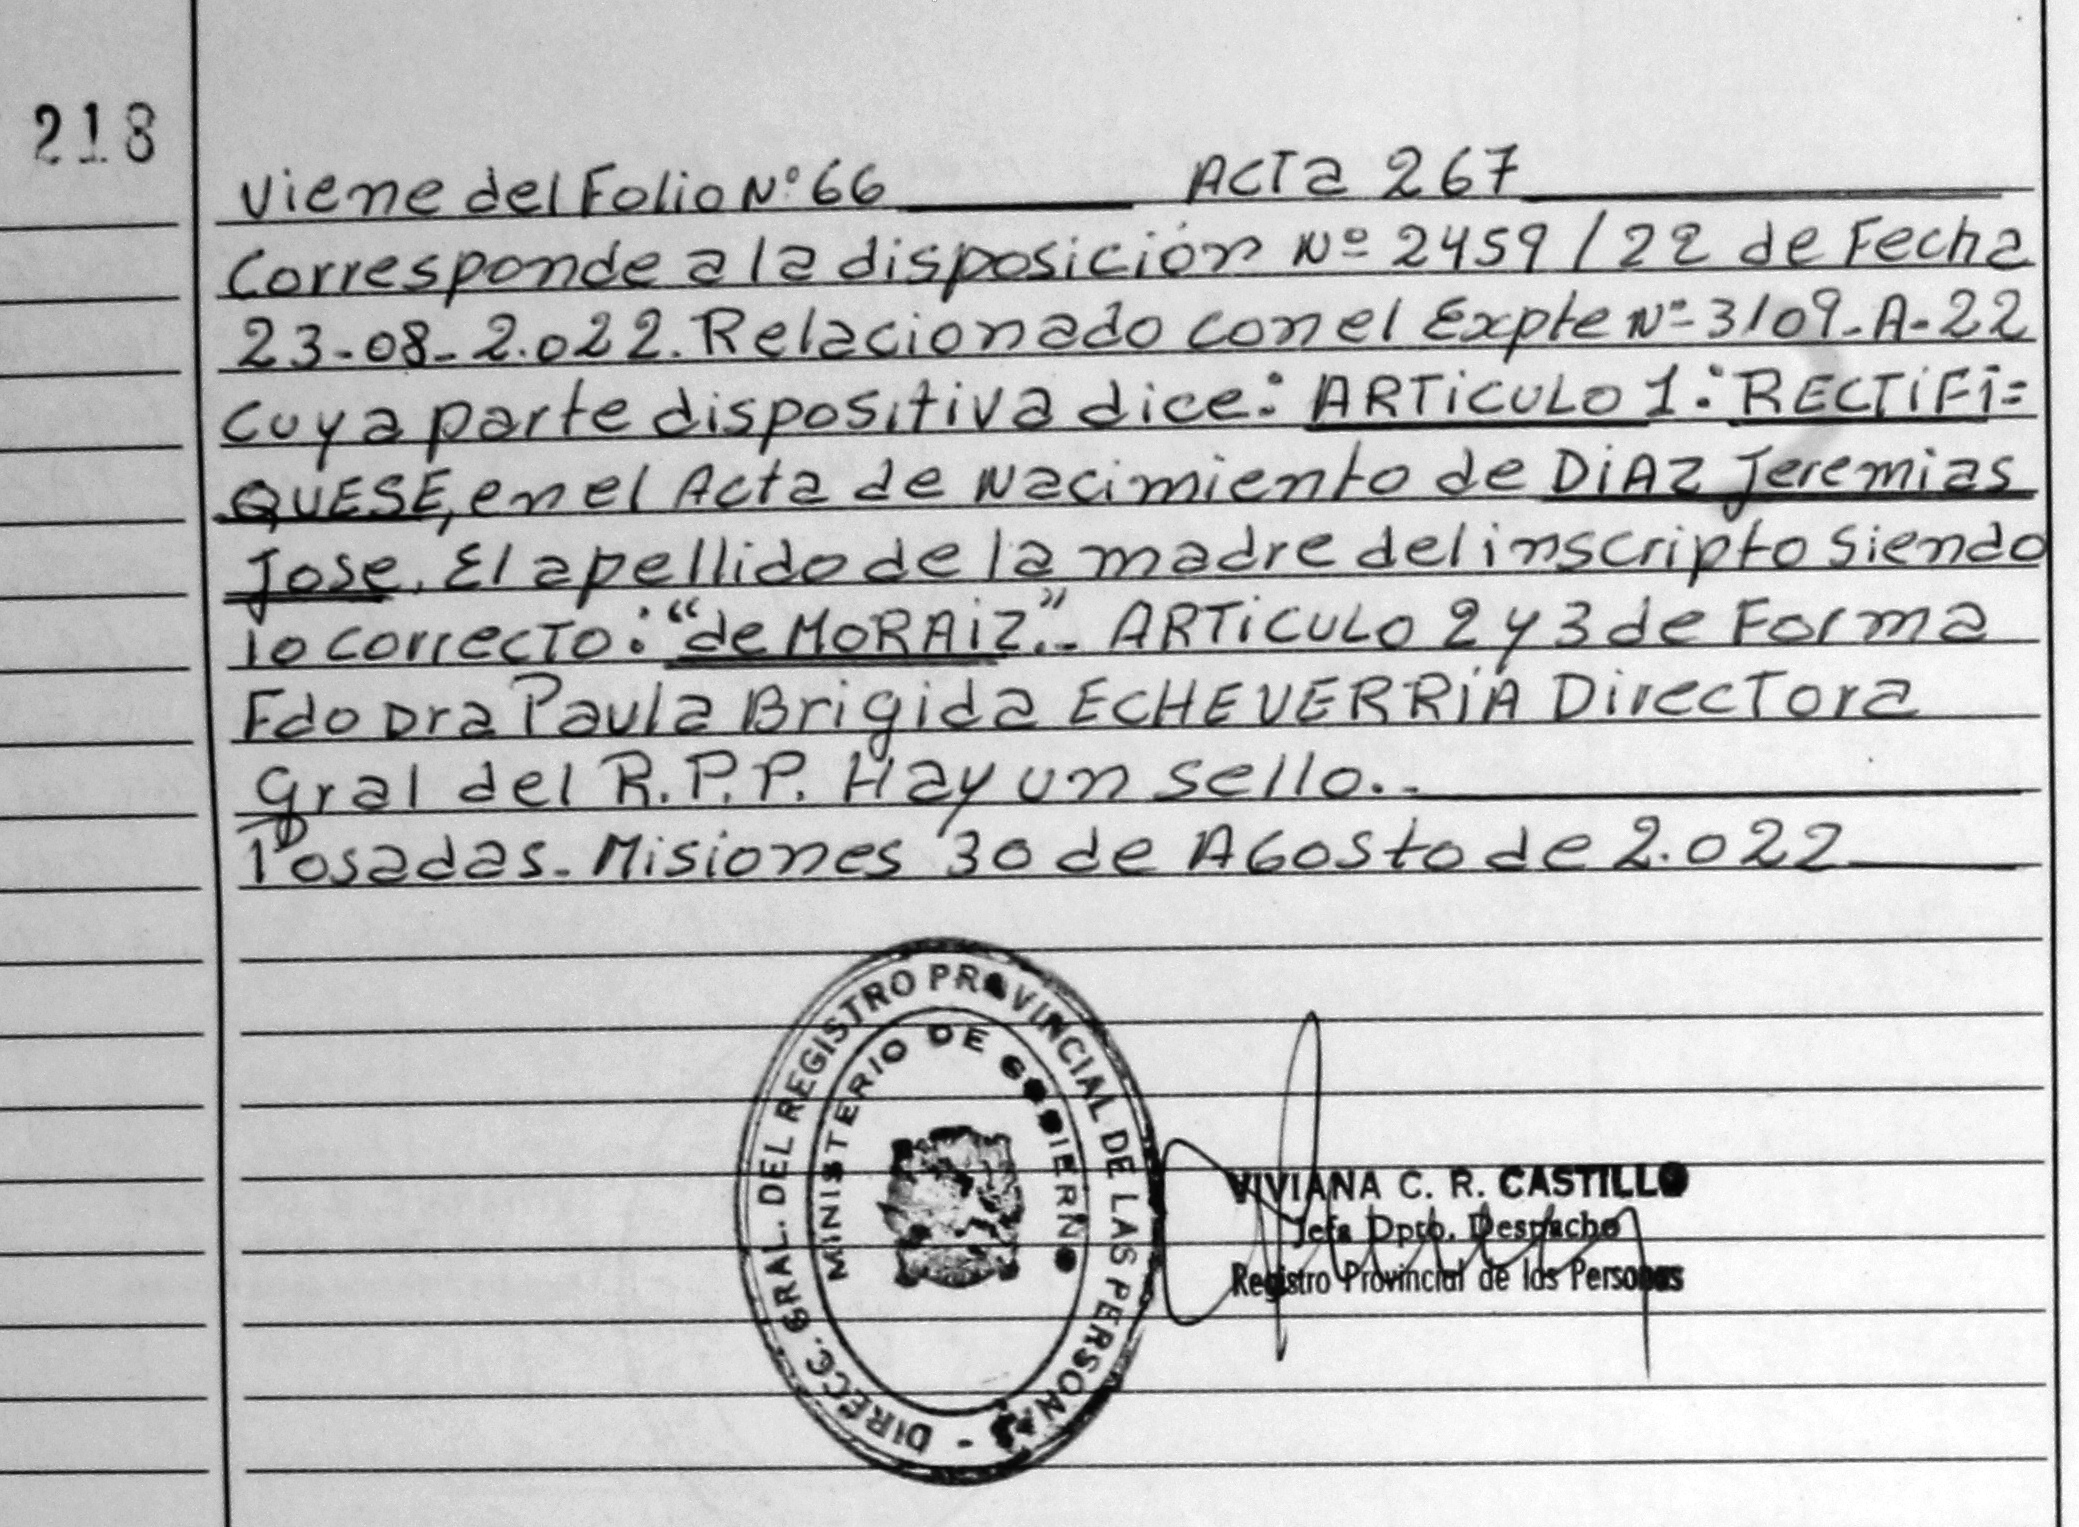 218
Viene del Folio N° 66 ACTA 267
Corresponde a la disposición Nº 2459/22 de Fecha
23-08-2.022. Relacionado con el Expte Nº 3109-A-22
Cuya parte dispositiva dice: ARTiCULO 1: RECTiFi=
QUESE, en el Acta de Nacimiento de DiAZ Jeremias
Jose. El apellido de la madre del inscripto siendo
lo correcto: "de MORAiZ".- ARTiCULO 2 y 3 de Forma
Fdo Dra Paula Brigida ECHEVERRiA Directora
Gral del R.P.P. Hay un sello..
Posadas. Misiones 30 de AGosto de 2.022
DIRECC. GRAL. DEL REGISTRO PROVINCIAL DE LAS PERSONAS -
MINISTERIO DE GOBIERNO
VIVIANA C. R. CASTILLO
Jefa Dpto. Despacho
Registro Provincial de las Personas